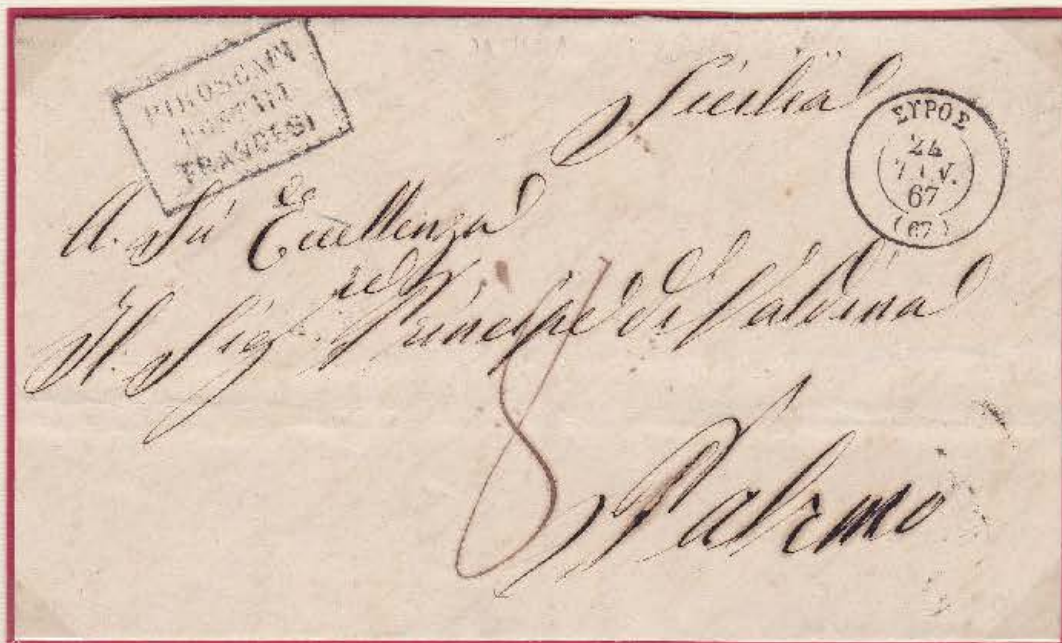 PIROSCAFI
POSTALI
FRANCESI
Sicilia
ΣΥΡΟΣ
24
67
(67)
A. Sua Eccellenza
Il Sigr. Principe di Valdina
8
Palermo